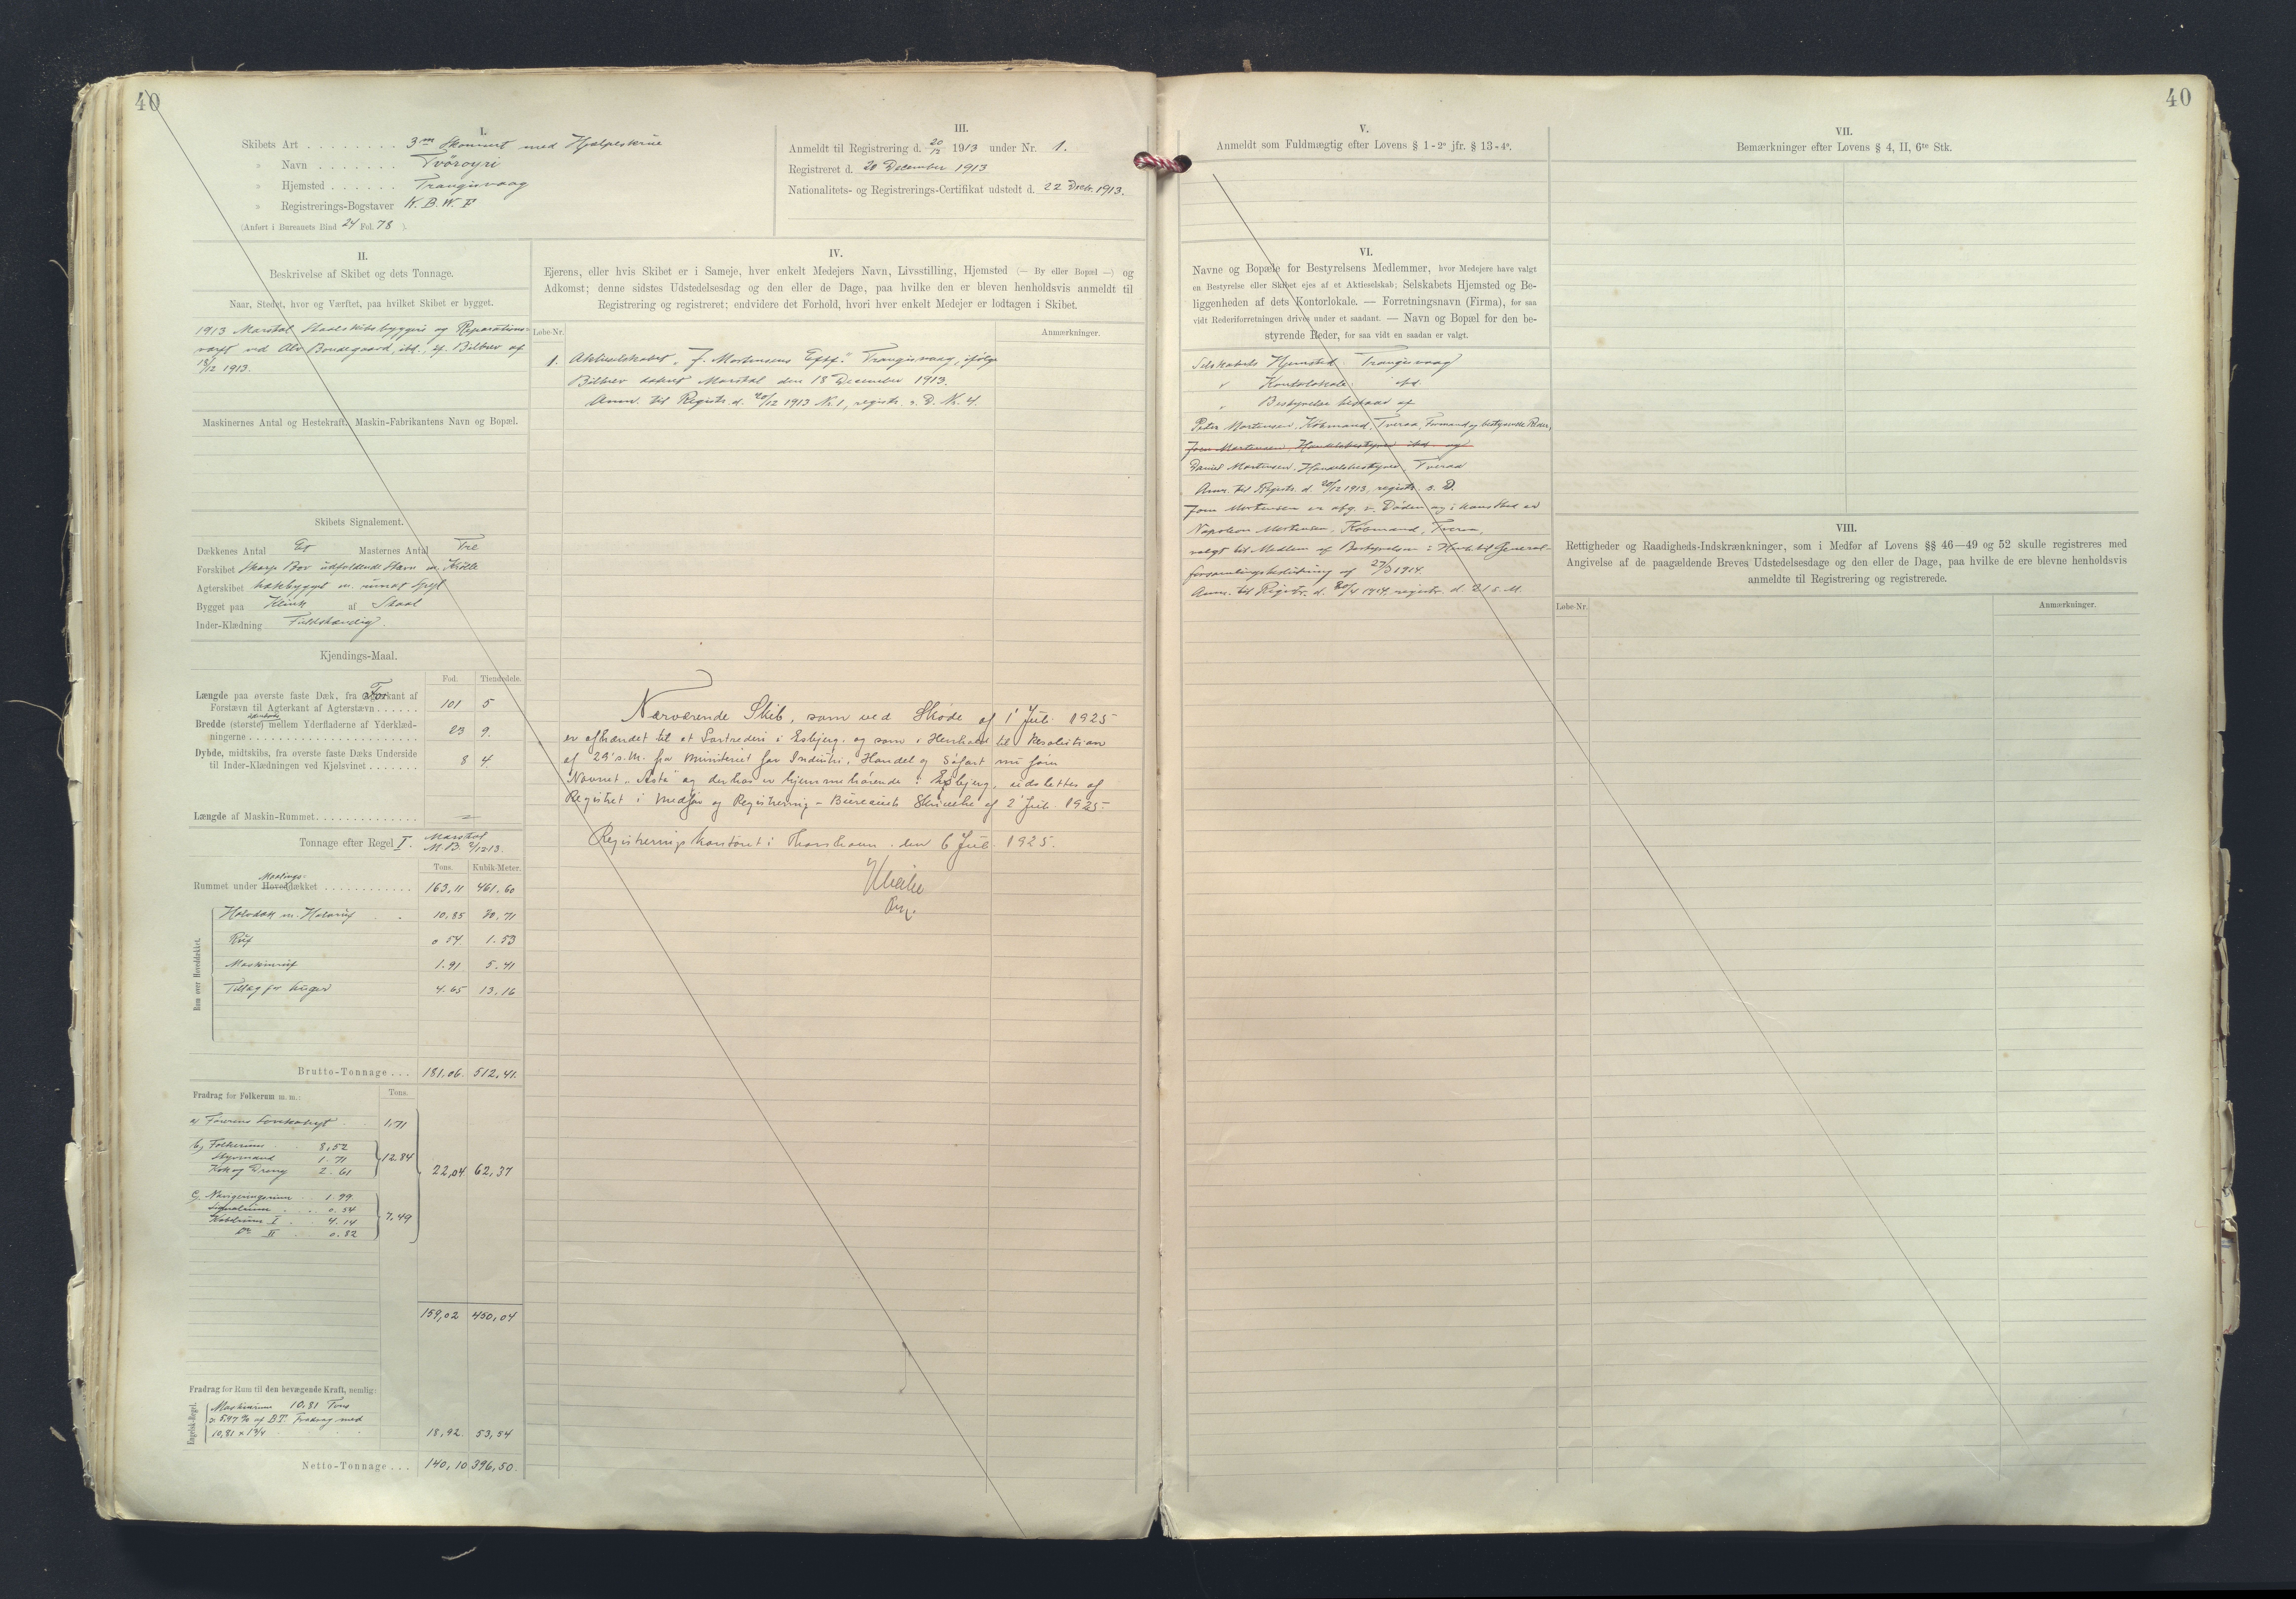 40
I.
Skibets Art . . . . . . . . 3m Skonnert med Hjælpeskrue
» Navn . . . . . . . Tvöroyri
» Hjemsted . . . . . . Trangisvaag
» Registrerings-Bogstaver N.B.W.F
(Anført i Bureauets Bind 24 Fol. 78 ).
III.
Anmeldt til Registrering d. 20/12 1913 under Nr. 1.
Registreret d. 20 December 1913
Nationalitets- og Registrerings-Certifikat udstedt d. 22 Decbr. 1913.
II.
Beskrivelse af Skibet og dets Tonnage.
Naar, Stedet, hvor og Værftet, paa hvilket Skibet er bygget.
1913 Marstal Staalskibsbyggeri og Reparations-
værft ved Alv Bondegaard, ibd., if. Bilbrev af
18/12 1913.
Maskinernes Antal og Hestekraft. Maskin-Fabrikantens Navn og Bopæl.
Skibets Signalement.
Dækkenes Antal Et Masternes Antal Tre
Forskibet skarp Bov udfaldende Stavn m. Krölle
Agterskibet hækbygget m. rundt Spejl
Bygget paa Klink af Staal
Inder-Klædning Fuldstændig.
Kjendings-Maal.
Fod. Tiendedele.
Længde paa øverste faste Dæk, fra Forkant af
Forstævn til Agterkant af Agterstævn . . . . . . 101 5
Bredde (største) mellem Yderfladerne af Yderklæd-
ningerne . . . . . . . . . . 23 9.
Dybde, midtskibs, fra øverste faste Dæks Underside
til Inder-Klædningen ved Kjølsvinet . . . . . . . 8 4
Længde af Maskin-Rummet. . . . . . . . . . . . . .
Tonnage efter Regel I. Marstal
M.B. 2/12 13.
Tons. Kubik-Meter.
Maalings-
Rummet under Hoveddækket . . . . . . . . . . . . 163,11 461,60
Rum over Hoveddækket.
Halvdæk m. Halvruf 10,85 30,71
Ruf 0 54 1.53
Maskinruf 1.91 5.41
Tillæg for Luger 4.65 13,16
Brutto-Tonnage . . . 181,06. 512,41.
Fradrag for Folkerum m. m.: Tons.
a) Førerens Lovekahyt 1,71
b) Folkerum 8,52
Styrmand 1.71
Kok og Dreng 2.61
12 84
22,04 62,37
c) Navigeringsrum 1.99
Signalrum . . 0.54
Kabelrum I . 4.14
Do II . 0.82
7,49
159,02 450,04
Fradrag for Rum til den bevægende Kraft, nemlig:
Engelsk-Regel.
Maskinrum 10.81 Tons
5.97 % af B.T. Fradrag med
10,81 × 1 3/4 18,92 53,54
Netto-Tonnage . . . 140,10 396,50.
IV.
Ejerens, eller hvis Skibet er i Sameje, hver enkelt Medejers Navn, Livsstilling, Hjemsted (— By eller Bopæl —) og
Adkomst; denne sidstes Udstedelsesdag og den eller de Dage, paa hvilke den er bleven henholdsvis anmeldt til
Registrering og registreret; endvidere det Forhold, hvori hver enkelt Medejer er lodtagen i Skibet.
Løbe-Nr. Anmærkninger.
1. Aktieselskabet „J. Mortensens Eftf.“ Trangisvaag, ifølge
Bilbrev dateret Marstal den 18 December 1913.
Anm. til Registr. d. 20/12 1913 N. 1, registr. s. D. K. 4.
Nærværende Skib, som ved Skøde af 1' Juli 1925
er afhændet til et Partrederi i Esbjerg, og som i Henhold til Resolution
af 29' s.M. fra Ministeriet for Industri, Handel og Søfart nu fører
Navnet „Asta“ og derhos er hjemmehørende i Esbjerg, udslettes af
Registret i Medfør af Registrerings-Bureauets Skrivelse af 2' Juli 1925.
Registreringskontoret i Thorshavn, den 6 Juli 1925.
40
V.
Anmeldt som Fuldmægtig efter Lovens § 1-2° jfr. § 13-4°.
VI.
Navne og Bopæle for Bestyrelsens Medlemmer, hvor Medejere have valgt
en Bestyrelse eller Skibet ejes af et Aktieselskab; Selskabets Hjemsted og Be-
liggenheden af dets Kontorlokale. — Forretningsnavn (Firma), for saa
vidt Rederiforretningen drives under et saadant. — Navn og Bopæl for den be-
styrende Reder, for saa vidt en saadan er valgt.
Selskabets Hjemsted: Trangisvaag
" Kontorlokale: ibd.
" Bestyrelse bestaar af
Peter Mortensen, Købmand, Tveraa, Formand og bestyrende Reder,
Jørn Mortensen, Handelsbestyrer ibd. og
Daniel Mortensen, Handelsbestyrer, Tveraa
Anm. til Registr. d. 20/12 1913, registr. s. D.
Jørn Mortensen er afg. v. Døden og i hans Sted er
Napoleon Mortensen, Købmand, Tveraa,
valgt til Medlem af Bestyrelsen i Henh. til General-
forsamlingsbeslutning af 27/3 1914.
Anm. til Registr. d. 20/4 1914, registr. d. 21 s. M.
VII.
Bemærkninger efter Lovens § 4, II, 6te Stk.
VIII.
Rettigheder og Raadigheds-Indskrænkninger, som i Medfør af Lovens §§ 46—49 og 52 skulle registreres med
Angivelse af de paagældende Breves Udstedelsesdage og den eller de Dage, paa hvilke de ere blevne henholdsvis
anmeldte til Registrering og registrerede.
Løbe-Nr. Anmærkninger.